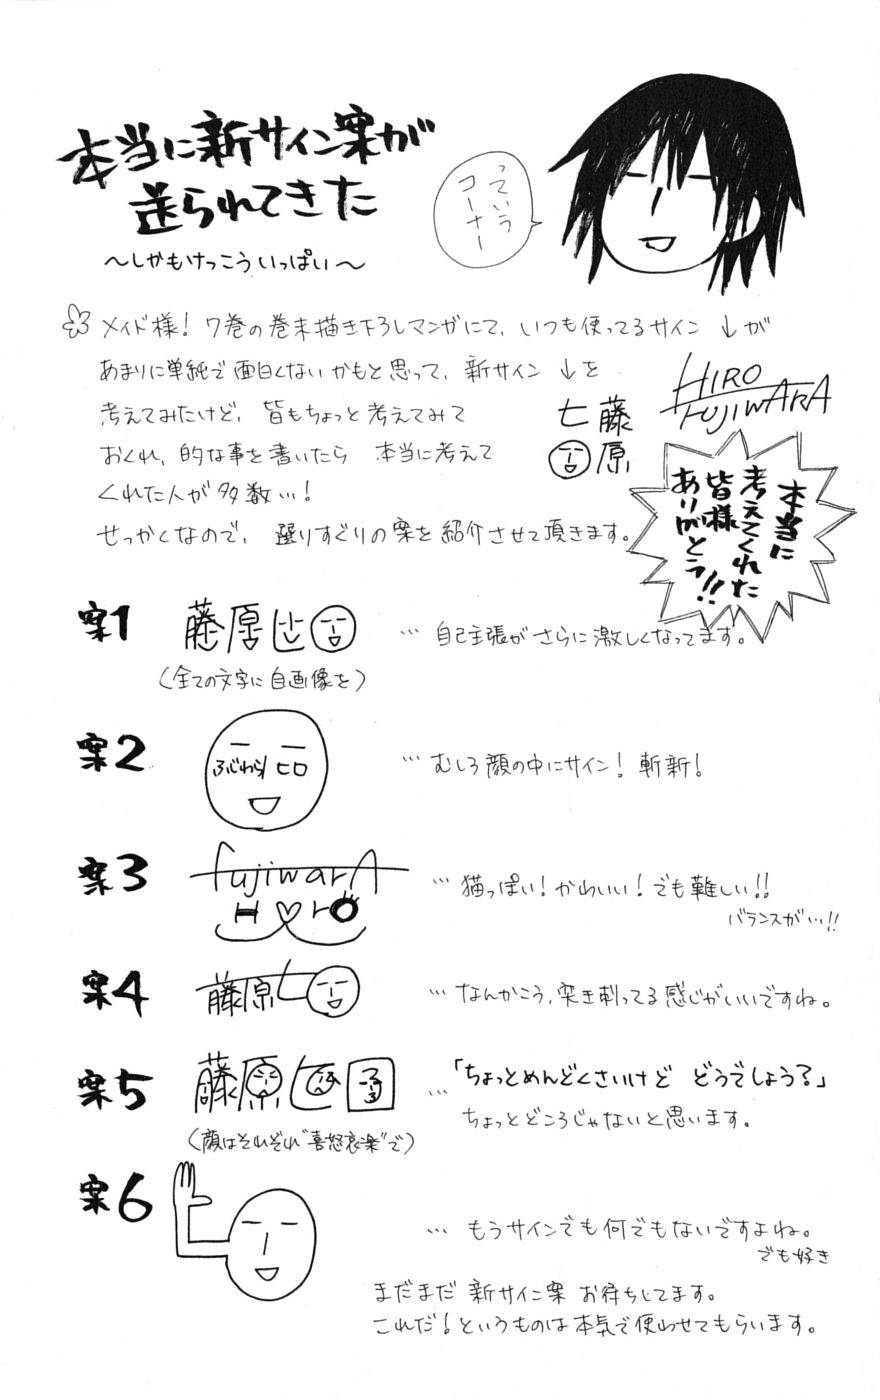 本当に新サイン案が
送られてきた
〜しかもけっこういっぱい〜
っていう
コーナー
メイド様!7巻の巻末描き下ろしマンガにて、いつも使ってるサイン ↓が
あまりに単純で面白くないかもと思って、新サイン ↓を
考えてみたけど、皆もちょっと考えてみて
おくれ、的な事を書いたら 本当に考えて
くれた人が多数…!
せっかくなので、選りすぐりの案を紹介させて頂きます。
HIRO
FUJIWARA
藤
原
ヒ
本当に
考えてくれた
皆様
ありがとう!!
案1
藤原ヒ
(全ての文字に自画像を)
… 自己主張がさらに激しくなってます。
案2
ふじわら ヒロ
… むしろ顔の中にサイン!斬新!
案3
fujiwarA
H♡rO
… 猫っぽい!かわいい!でも難しい!!
バランスが…!!
案4
藤原ヒ
… なんかこう、突き刺ってる感じがいいですね。
案5
藤原ヒロ
(顔はそれぞれ"喜怒哀楽"で)
… 「ちょっとめんどくさいけど どうでしょうる」
ちょっとどころじゃないと思います。
案6
… もうサインでも何でもないですよね。
でも好き
まだまだ 新サイン案 お待ちしてます。
これだ!というものは本気で使わせてもらいます。